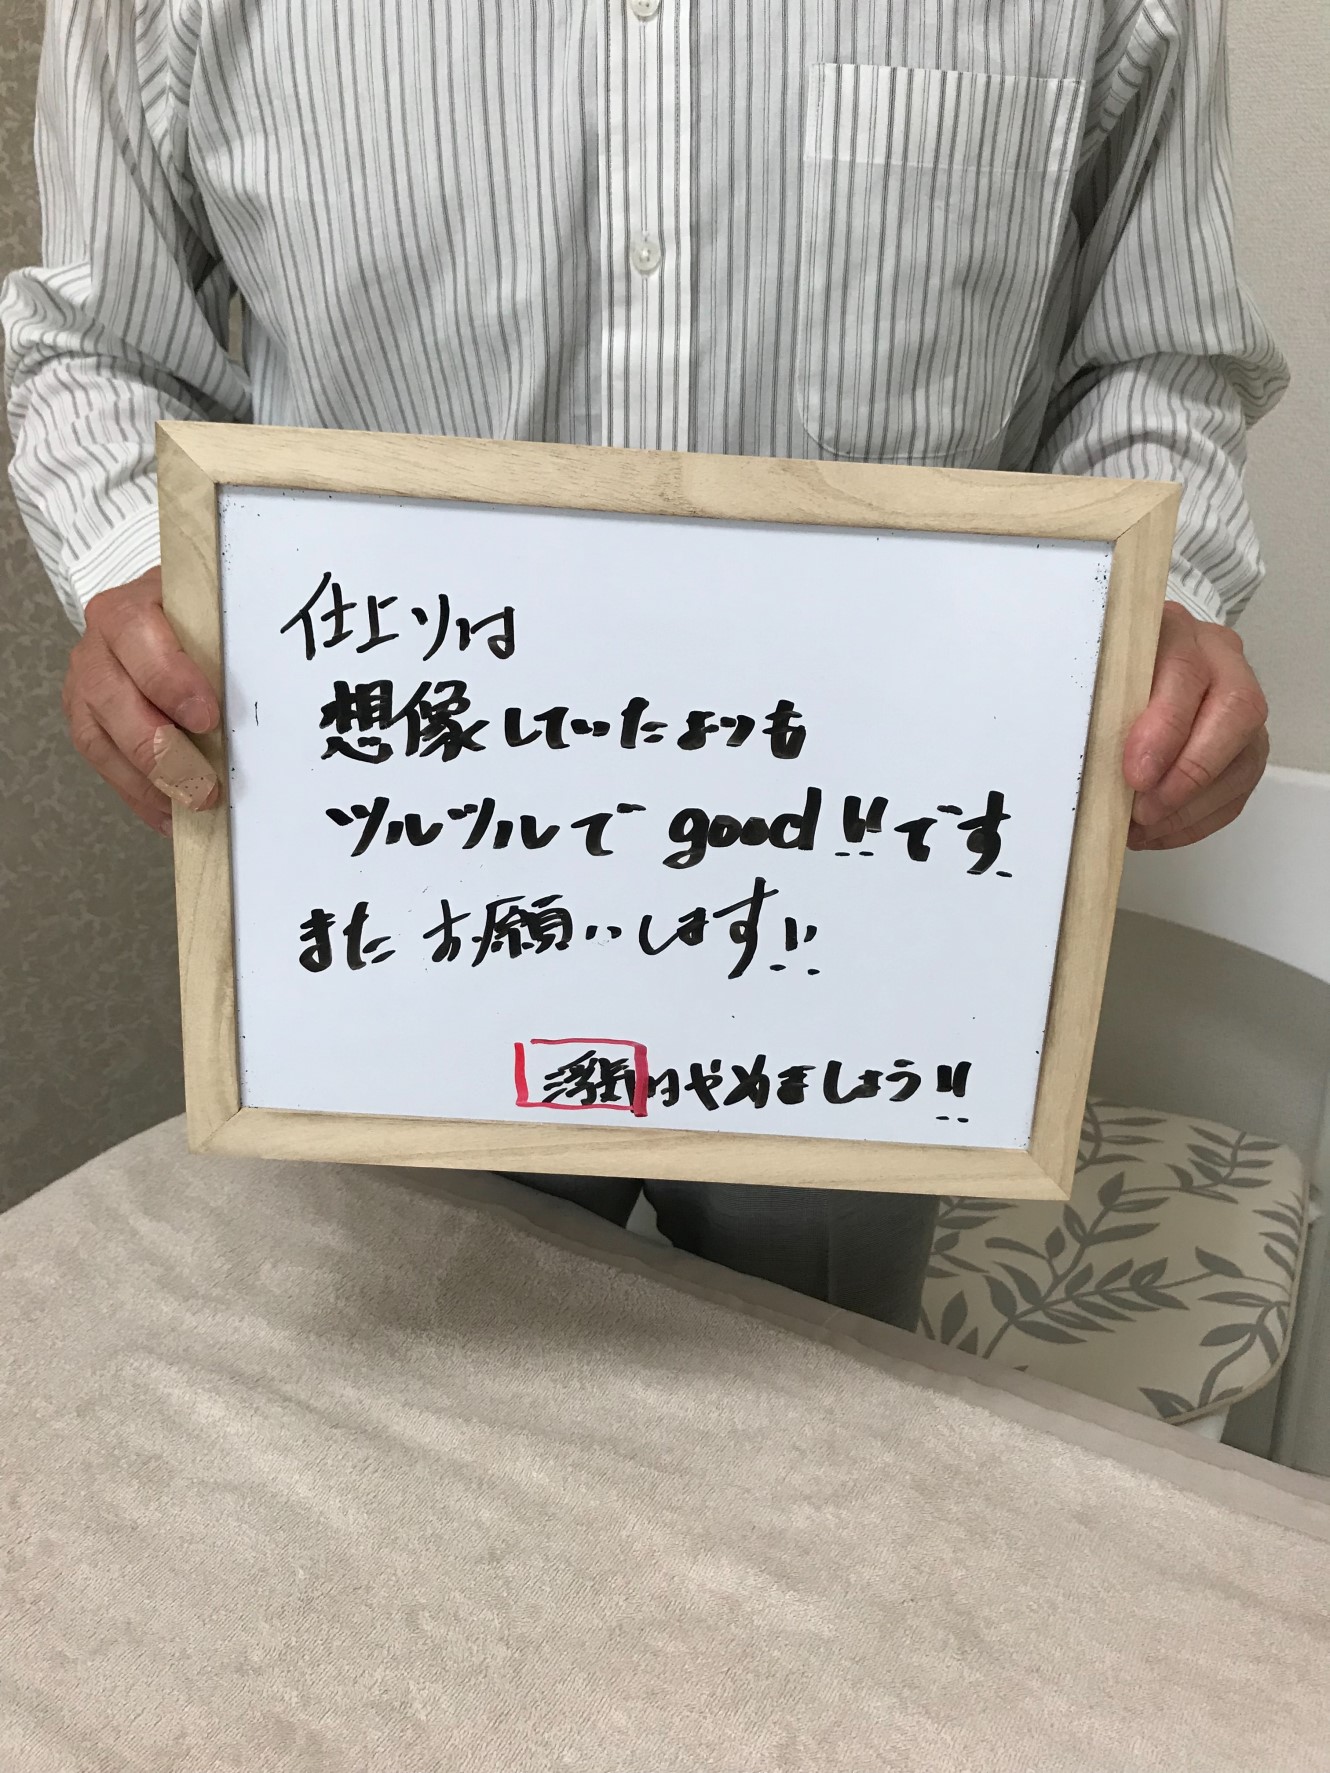 仕上りは
想像していたよりも
ツルツルで good!!です
またお願いします!!
浮気はやめましょう!!